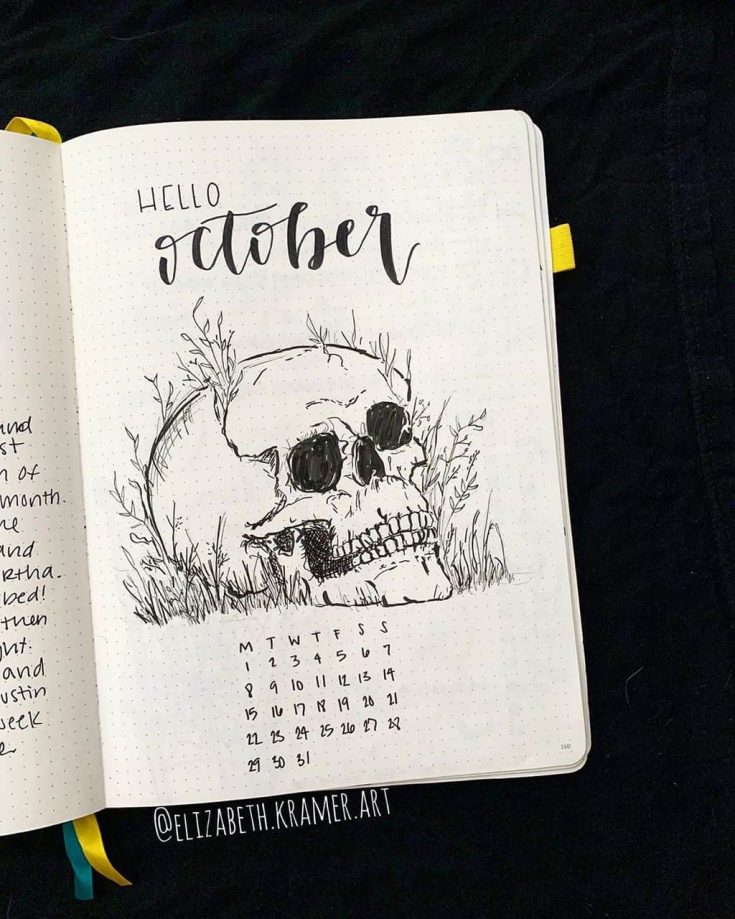 of
month.
and
bed!
then
and
HELLO
october
M T W T F S S
1 2 3 4 5 6 7
8 9 10 11 12 13 14
15 16 17 18 19 20 21
22 23 24 25 26 27 28
29 30 31
160
@ELIZABETH.KRAMER.ART